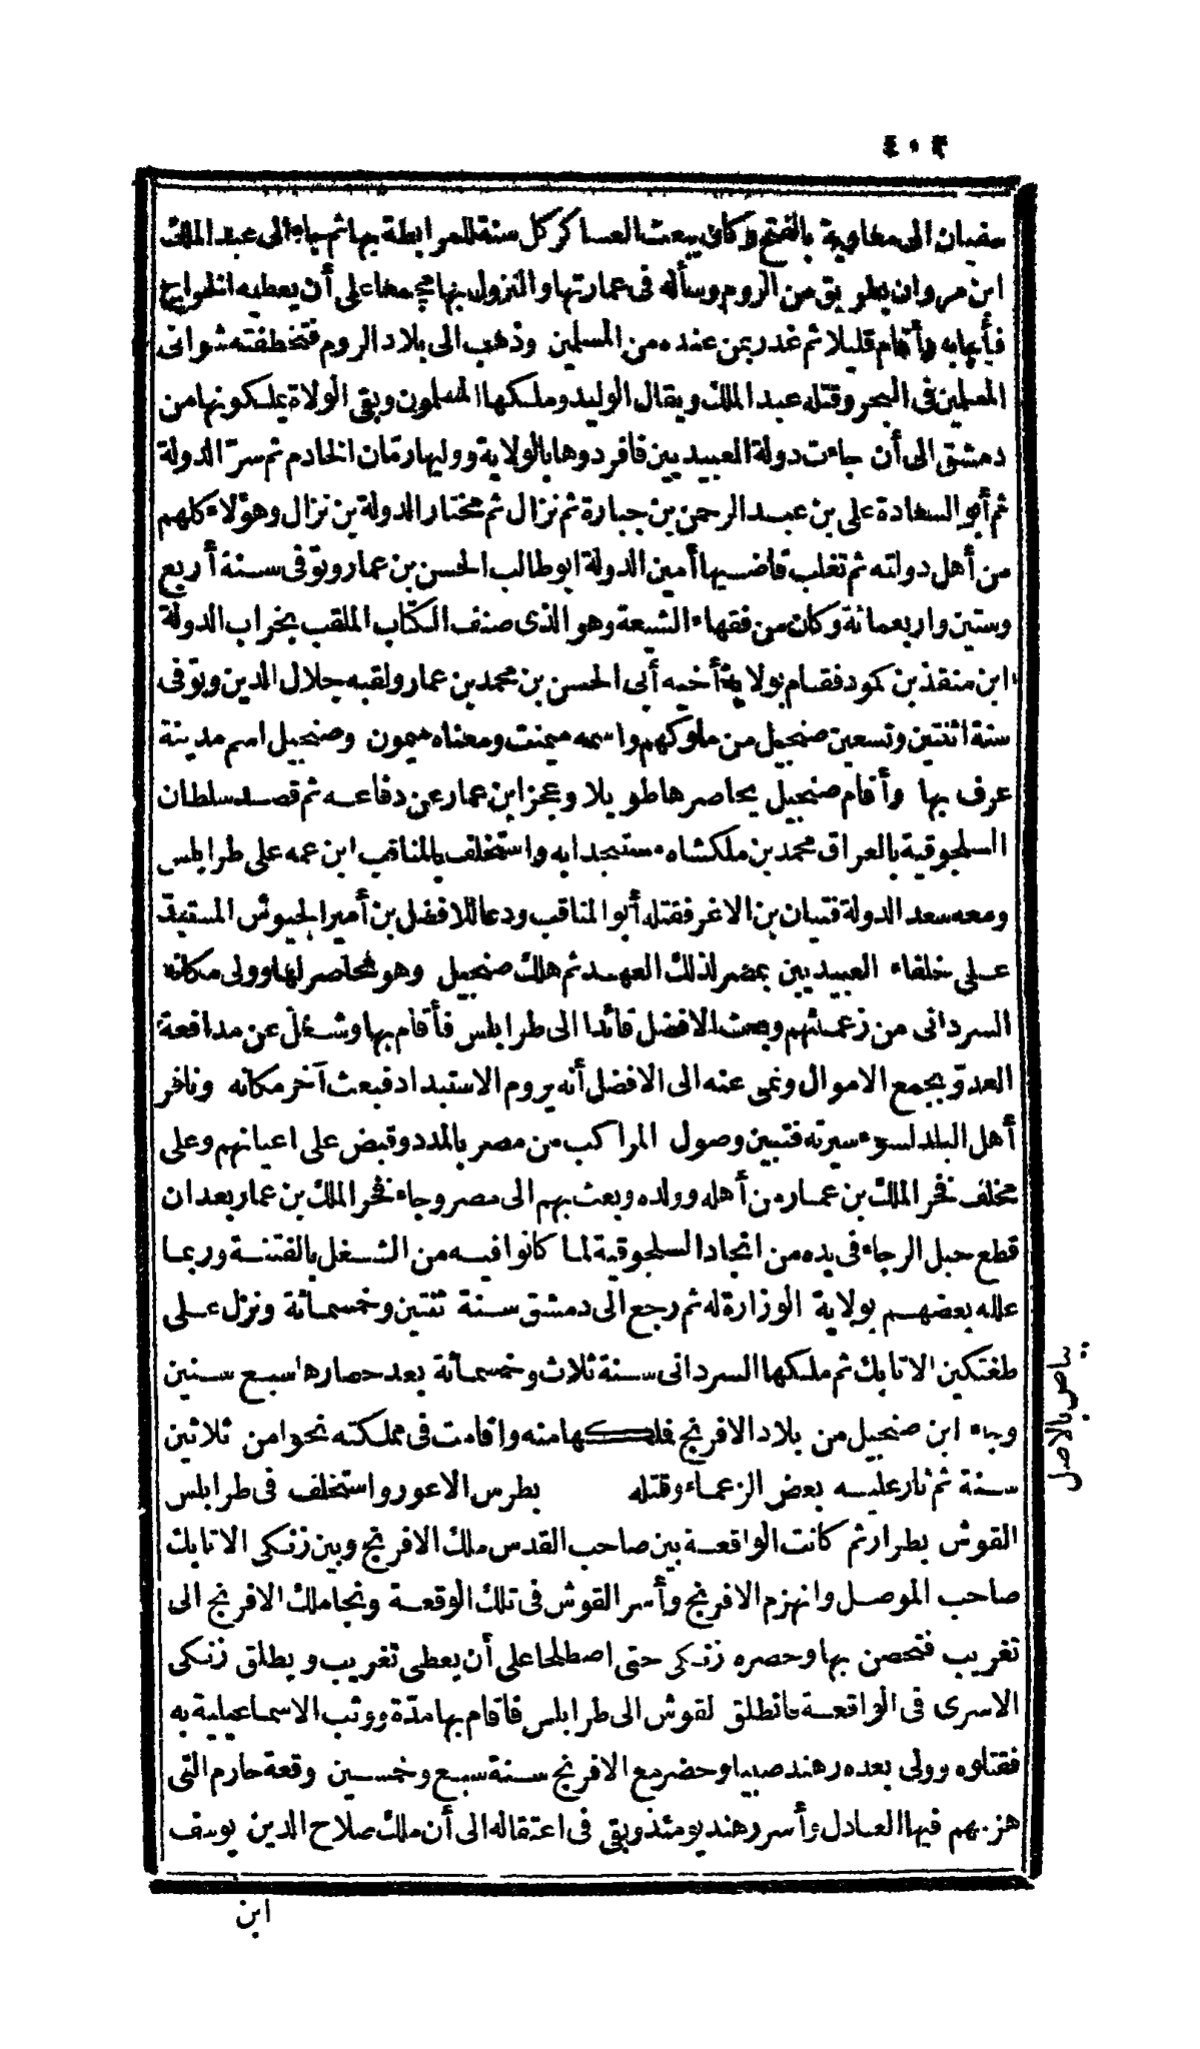 ٤٠٢
سفيان الى معاوية بالفتح وكان يبعث العساكر كل سنة للمرابطة بها ثم جاء الى عبد الملك
ابن مروان بطريق من الروم وسأله فى عمارتها والنزول بها مجمعا على أن يعطيه الخراج
فأجابه وأقام قليلا ثم غدر بمن عنده من المسلمين وذهب الى بلاد الروم فتخطفته شوانى
المسلمين فى البحر وقتله عبد الملك ويقال الوليد وملكها المسلمون وبقى الولاة يملكونها من
دمشق الى أن جاءت دولة العبيديين فافردوها بالولاية ووليها رمان الخادم ثم سرّ الدولة
ثم أبو السعادة على بن عبد الرحمن بن جبارة ثم نزال ثم مختار الدولة بن نزال وهؤلاء كلهم
من أهل دولته ثم تغلب قاضيها أمين الدولة ابو طالب الحسن بن عمار وتوفى سنة أربع
وستين واربعمائة وكان من فقهاء الشيعة وهو الذى صنف الكتاب الملقب بخراب الدولة
ابن منقذ بن كمود فقام بولاية أخيه أبى الحسن بن محمد بن عمار ولقبه جلال الدين وتوفى
سنة اثنتين وتسعين صنجيل من ملوكهم واسمه ميمنت ومعناه ميمون وصنجيل اسم مدينة
عرف بها وأقام صنجيل يحاصرها طويلا وعجز ابن عمار عن دفاعه ثم قصد سلطان
السلجوقية بالعراق محمد بن ملكشاه مستنجدا به واستخلف بالمناقب ابن عمه على طرابلس
ومعه سعد الدولة فتيان بن الاغر فقتله أبو المناقب ودعا للافضل بن أمير الجيوش المستبد
على خلفاء العبيديين بمصر لذلك العهد ثم هلك صنجيل وهو محاصر لها وولى مكانه
السردانى من زعمائهم وبعث الافضل قائدا الى طرابلس فأقام بها وشغل عن مدافعة
العدوّ بجمع الاموال ونمى عنه الى الافضل أنه يروم الاستبداد فبعث آخر مكانه ونافر
أهل البلد لسوء سيرته فتبين وصول المراكب من مصر بالمدد وقبض على اعيانهم وعلى
مخلف فخر الملك بن عمار من أهله وولده وبعث بهم الى مصر وجاء فخر الملك بن عمار بعد ان
قطع حبل الرجاء فى يده من انجاد السلجوقية لما كانوا فيه من الشغل بالفتنة وربما
علله بعضهم بولاية الوزارة له ثم رجع الى دمشق سنة ثنتين وخمسمائة ونزل على
طغتكين الاتابك ثم ملكها السردانى سنة ثلاث وخمسمائة بعد حصارها سبع سنين
وجاء ابن صنجيل من بلاد الافرنج فملكها منه واقامت فى مملكته نحوا من ثلاثين
سنة ثم ثار عليه بعض الزعماء وقتله بطرس الاعور واستخلف فى طرابلس
القوش بطرار ثم كانت الواقعة بين صاحب القدس ملك الافرنج وبين زنكى الاتابك
صاحب الموصل وانهزم الافرنج وأسر القوش فى تلك الوقعة ونجا ملك الافرنج الى
تغريب فتحصن بها وحصره زنكى حتى اصطلحا على أن يعطى تغريب ويطلق زنكى
الاسرى فى الواقعة فانطلق لقوش الى طرابلس فاقام بها مدّة ووثب الاسماعيلية به
فقتلوه وولى بعده رهند صبيا وحضر مع الافرنج سنة سبع وخمسين وقعة حارم التى
هزمهم فيها العادل وأسر رهند يومئذ وبقى فى اعتقاله الى أن ملك صلاح الدين يوسف
ابن
بياض بالاصل